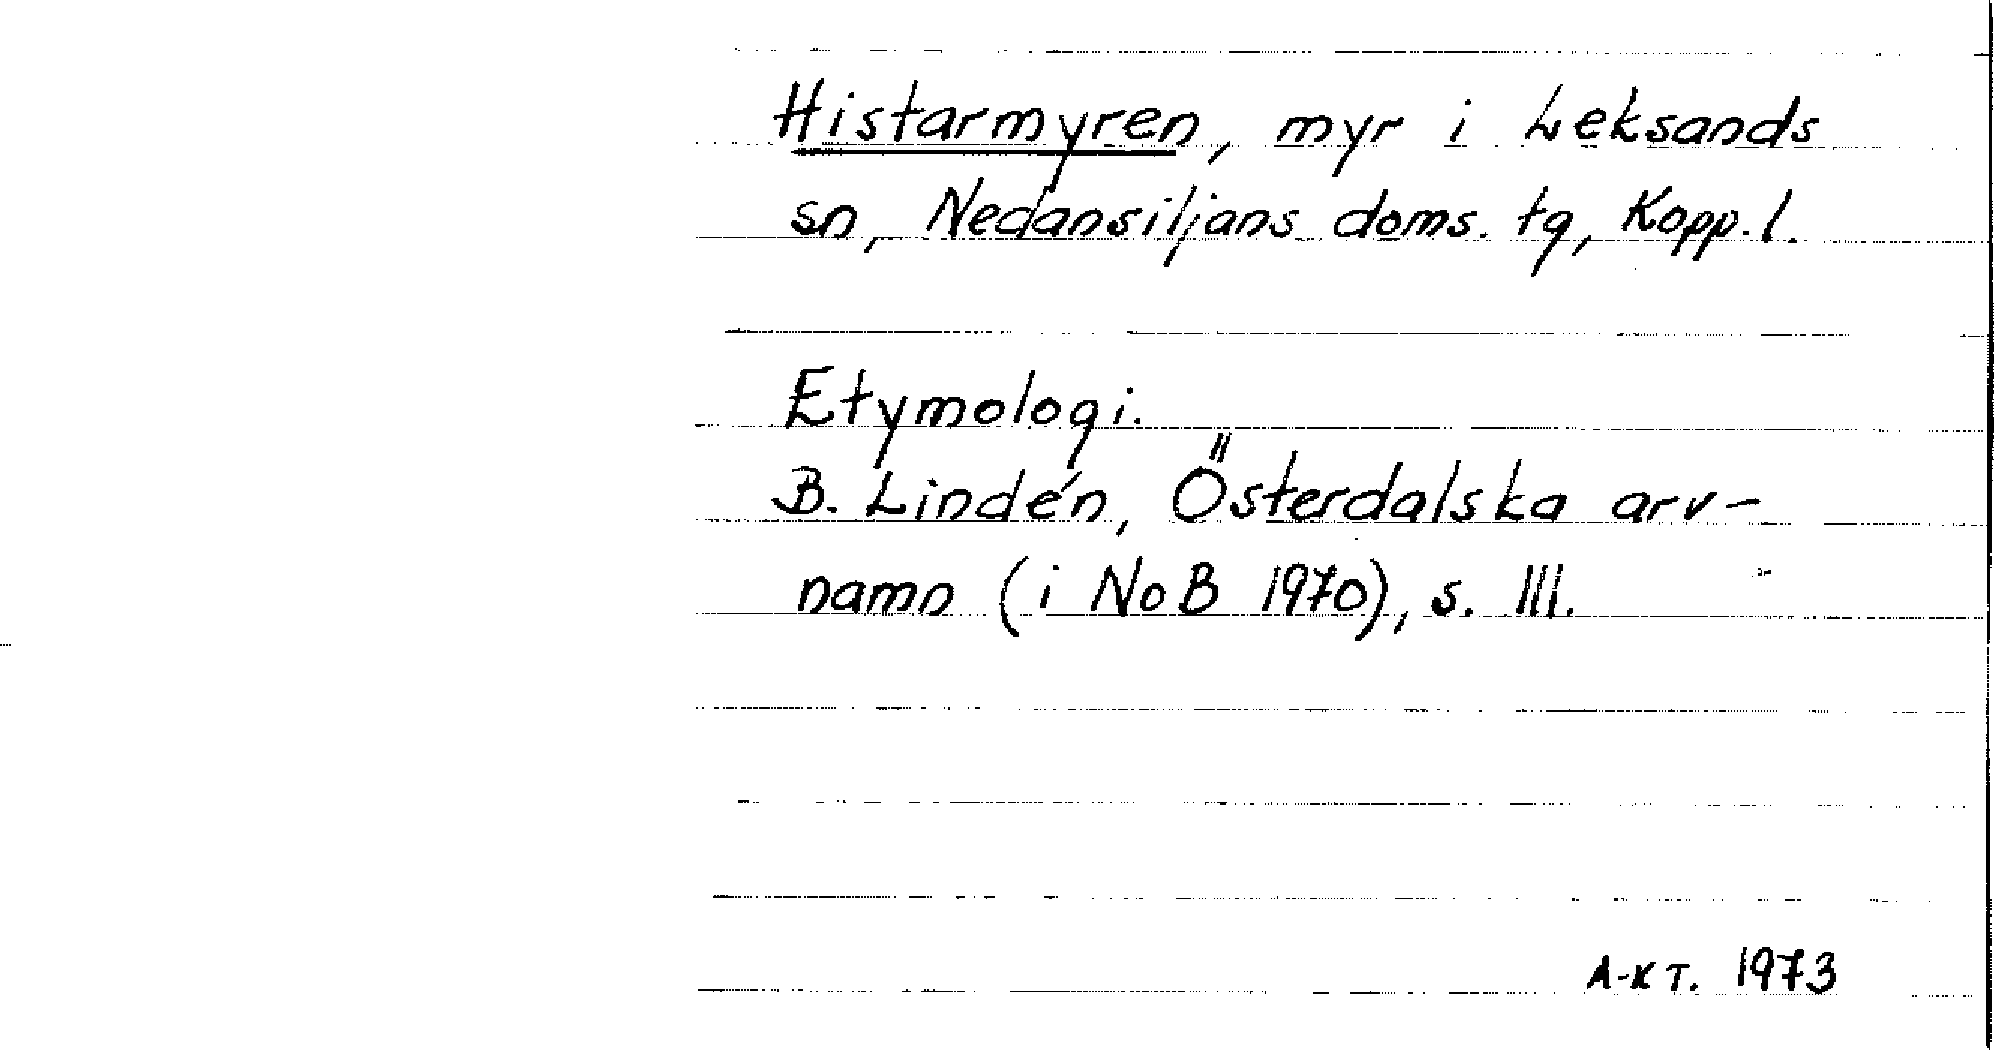 Histarmyren, myr i Leksands
sn, Nedansiljans doms. tg, Kopp. l.
Etymologi.
B. Lindén, Österdalska arv-
namn (i NoB 1970), s. 111.
A-K T. 1973